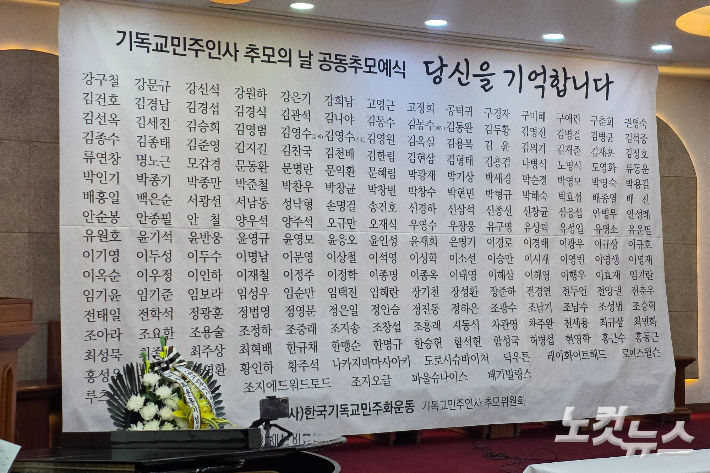 기독교민주인사 추모의 날 공동추모예식 당신을 기억합니다
강구철 강문규 강신석 강원하 강은기 강희남 고영근 고정희 공덕귀 구경자 구미혜 구애련 구춘회 권명숙
김건호 김경남 김경섭 김경식 김관석 김나야 김동수 김동수 김동완 김두황 김명진 김병걸 김병균 김석중
김선옥 김세진 김승희 김영범 김영수 김영수 김영원 김옥실 김용복 김윤 김의기 김재준 김재훈 김정호
김종수 김종태 김준영 김지길 김찬국 김천배 김한림 김현삼 김형태 김홍겸 나병식 노명식 도영화 류동운
류연창 명노근 모갑경 문동환 문병란 문익환 문혜림 박광재 박기상 박세경 박순경 박영모 박영숙 박용길
박인기 박종기 박종만 박준철 박찬우 박창균 박창빈 박창수 박현민 박형규 박혜숙 박효섭 배종열 배진
배홍일 백은순 서광선 서남동 성낙형 손명걸 송건호 신경하 신삼석 신종선 신창균 심응섭 안병무 안성례
안순봉 안종필 안철 양우석 양주석 오규만 오재식 우영수 우창웅 유구영 유상덕 유성일 유영소 유운필
유원호 윤기석 윤반웅 윤영규 윤영모 윤응오 윤인성 윤재희 은명기 이경로 이경배 이광우 이규상 이규호
이기영 이두성 이두수 이명남 이문영 이상철 이석영 이성학 이소선 이승만 이시재 이영빈 이영생 이영재
이옥순 이우정 이인하 이재철 이정주 이정학 이종명 이종옥 이태영 이해삼 이해영 이행우 이효재 임기란
임기윤 임기준 임보라 임성우 임순만 임택진 임혜란 장기천 장성환 장준하 전경연 전두인 전망권 전주우
전태일 전학석 정광훈 정법영 정영문 정은일 정인승 정진동 정하은 조광수 조남기 조남수 조성범 조승혁
조아라 조요한 조용술 조정하 조중래 조지송 조창섭 조홍래 지동식 차관영 차주완 천세용 최규삼 최만화
최성묵 최주상 최혁배 한규채 한맹순 한명규 한승헌 함석헌 함성국 허병섭 현영학 홍근수 홍동근
황인하 황주석 나카지마마사아키 도로시슈바이쳐 딕우튼 레이화이트헤드 로이스윌슨
조지에드워드토드 조지오글 파울슈나이스 패기빌링스
사)한국기독교민주화운동 기독교민주인사 추모위원회
노컷뉴스